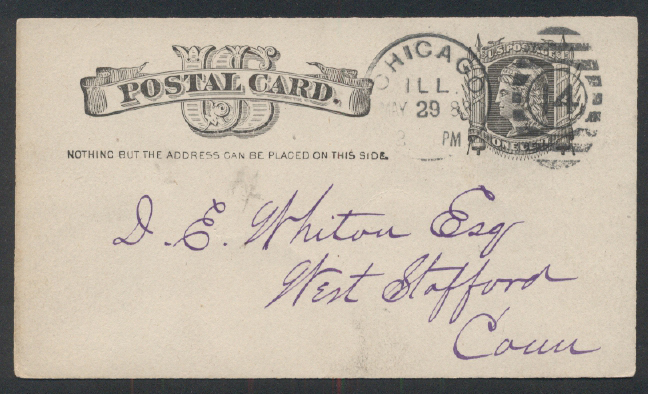 US
POSTAL CARD.
NOTHING BUT THE ADDRESS CAN BE PLACED ON THIS SIDE.
CHICAGO
ILL.
29
PM
U.S. POSTAGE
ONE CENT
14
D. E. Whiton Esq
West Stafford
Conn